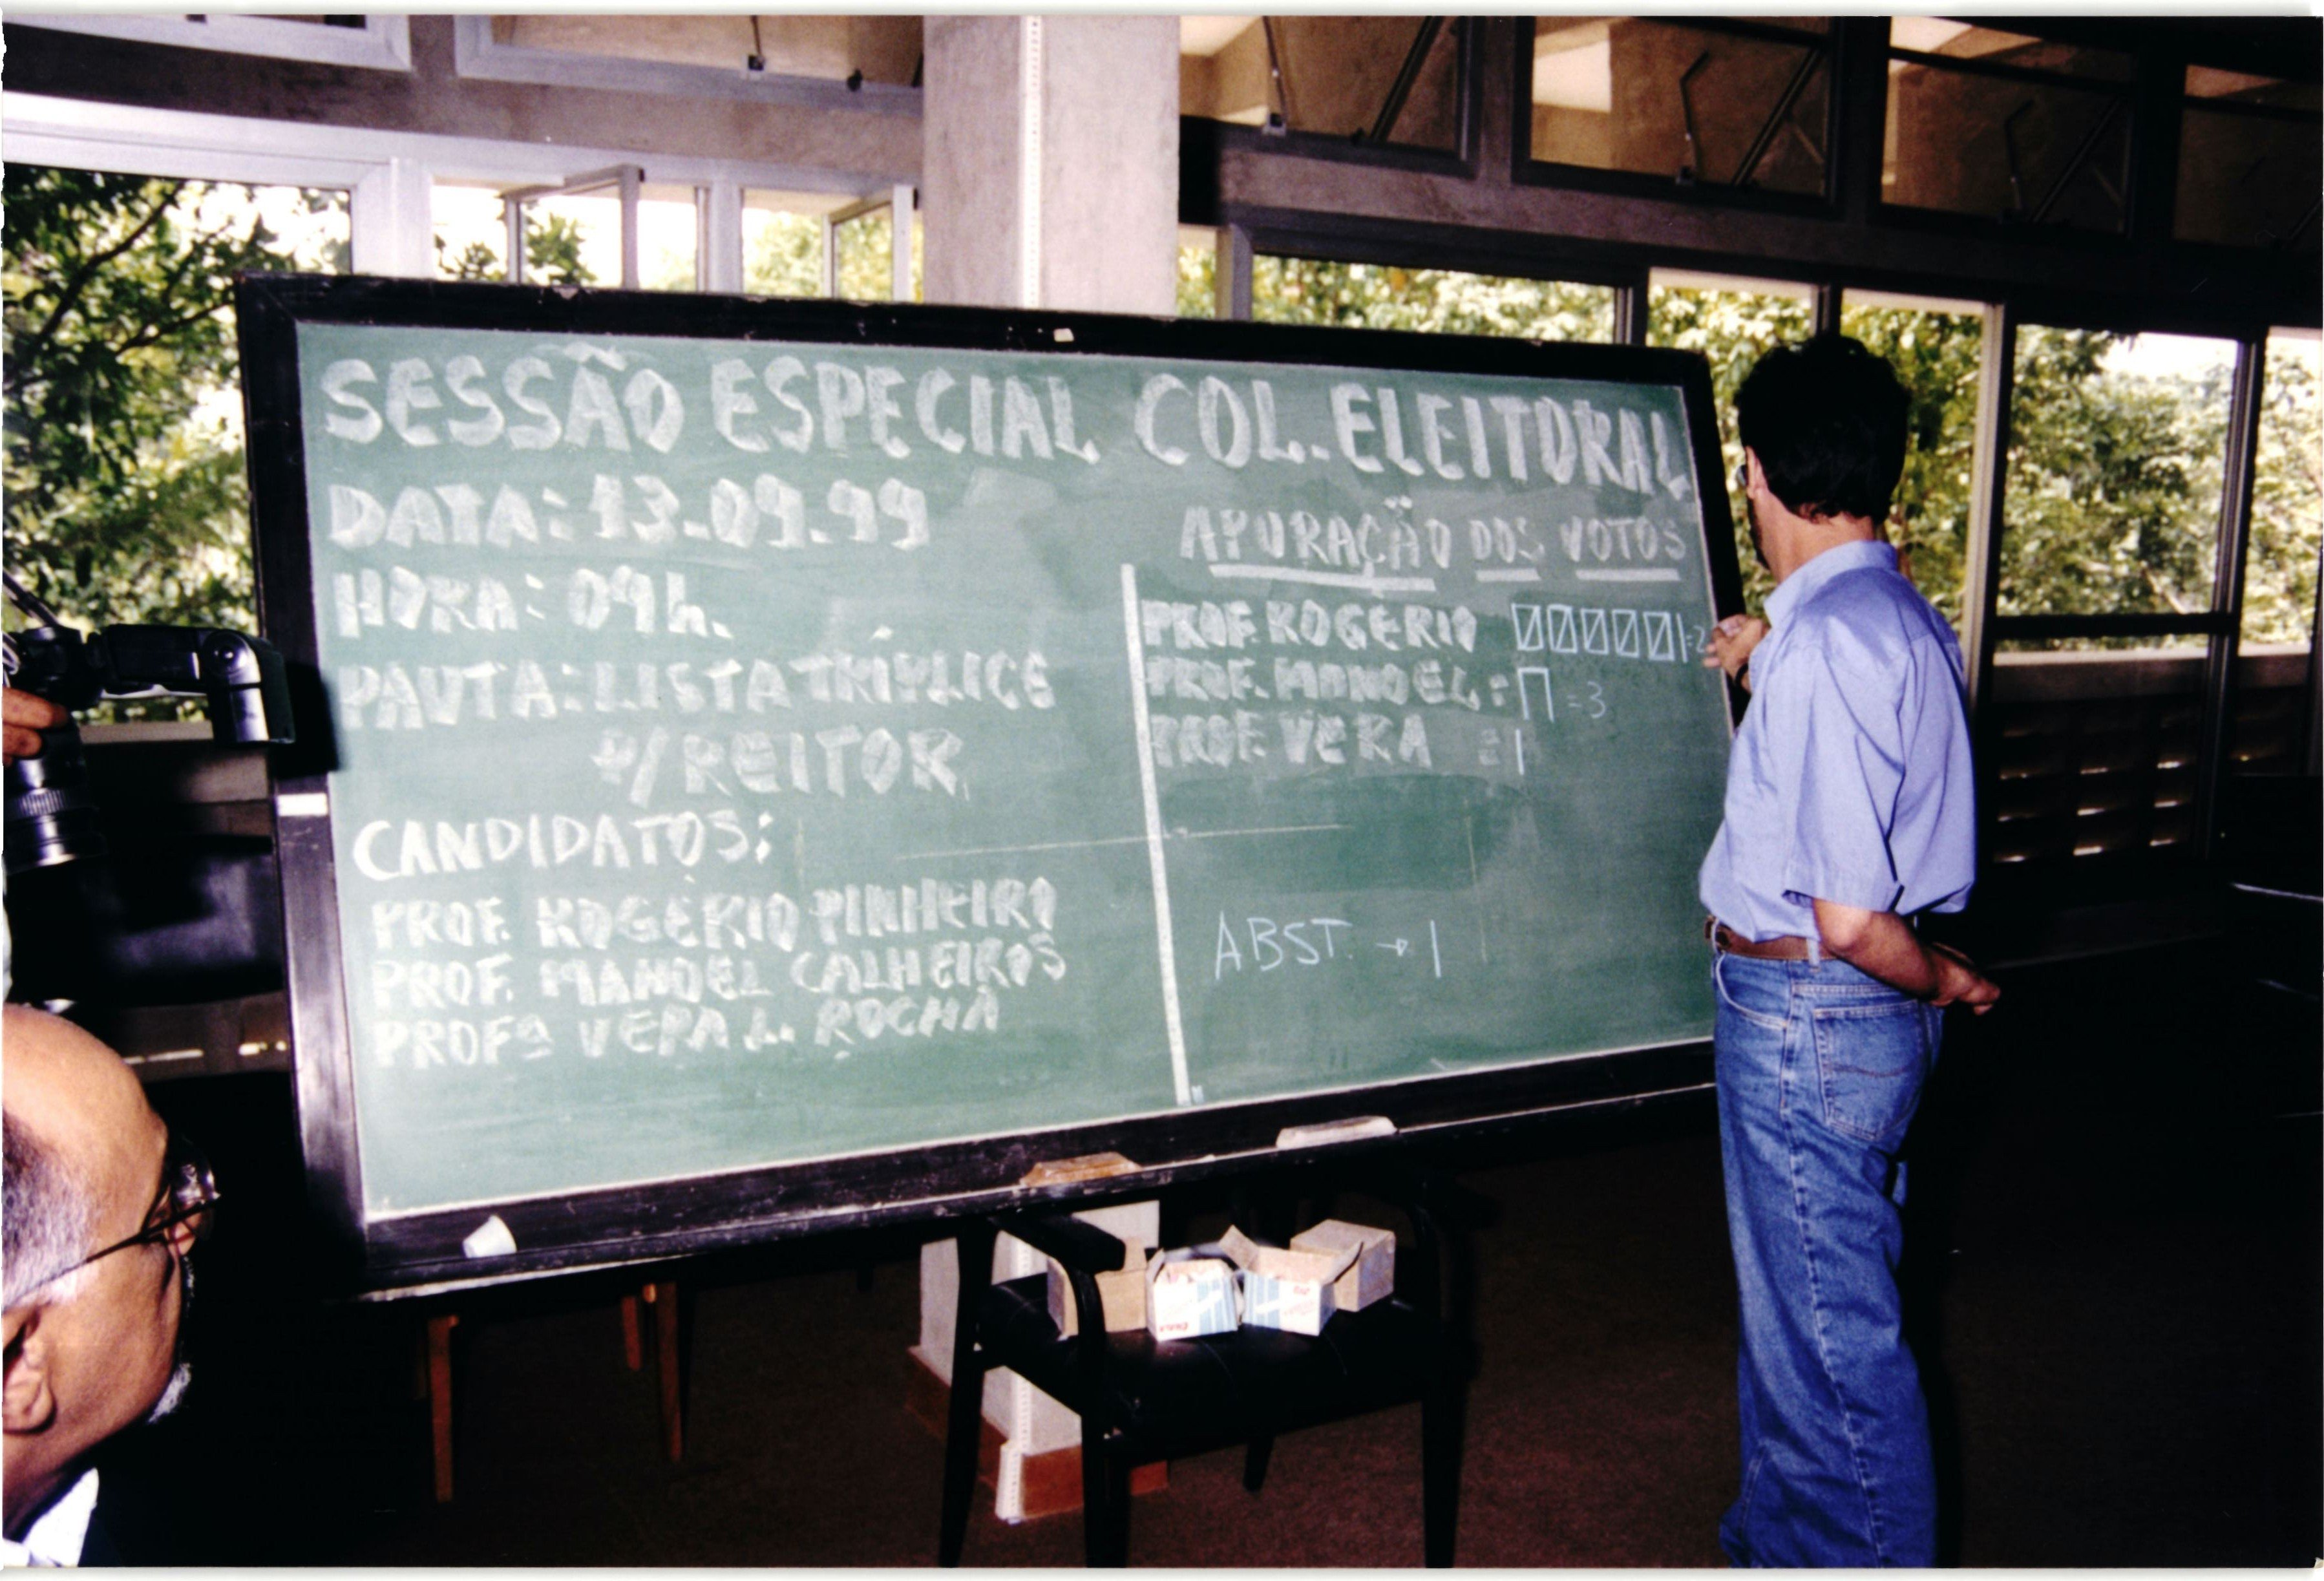 SESSÃO ESPECIAL COL. ELEITORAL
DATA: 13.09.99
HORA: 09h.
PAUTA: LISTA TRÍPLICE
P/ REITOR
CANDIDATOS:
PROF. ROGÉRIO PINHEIRO
PROF. MANOEL CALHEIROS
PROFª VERA L. ROCHA
APURAÇÃO DOS VOTOS
PROF. ROGÉRIO
PROF. MANOEL: = 3
PROF. VERA =
ABST. → 1